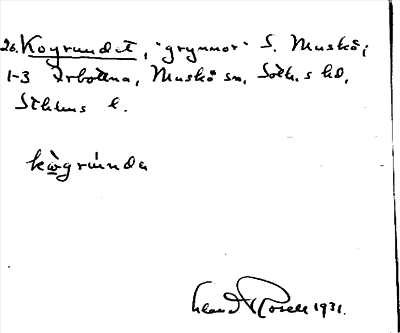 26. Kogrundet, "grynnor" S. Muskö;
1-3 Arbottna, Muskö sn, Soth.s hd,
Sthlms l.
kògrúnda
Rosell 1931.